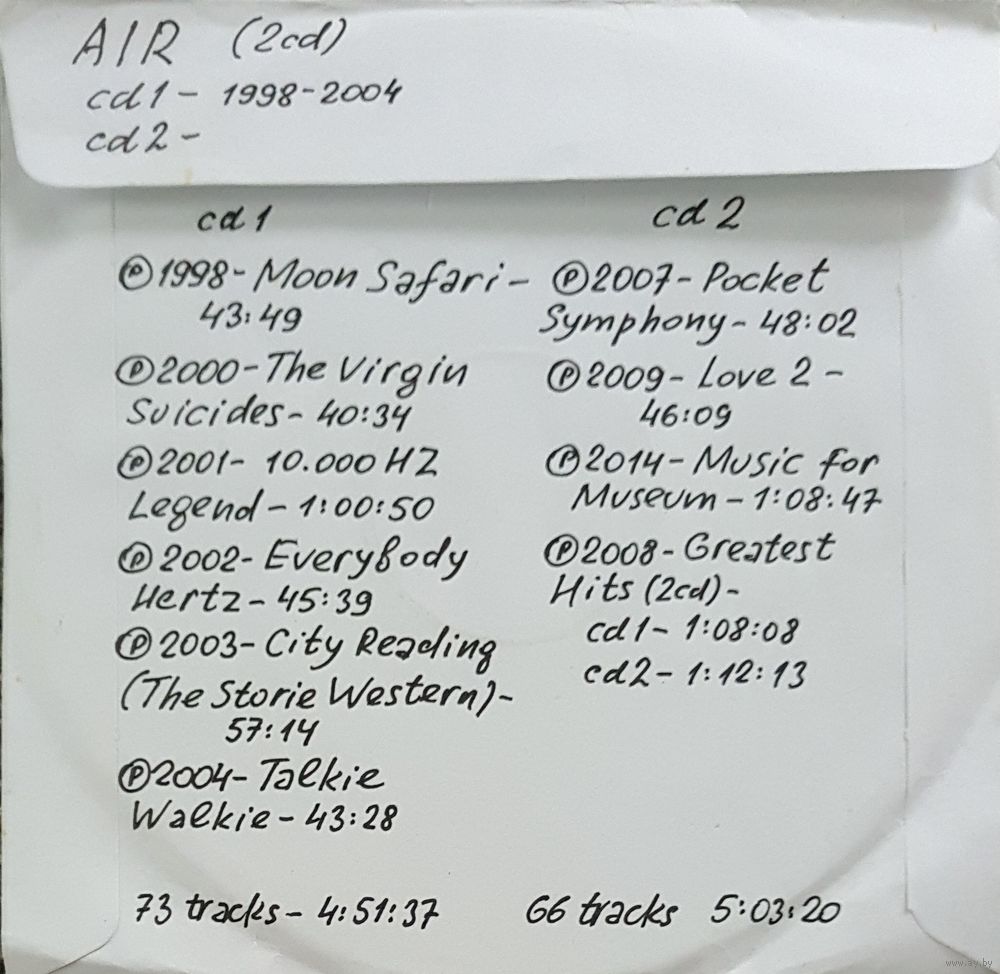 AIR (2cd)
cd1 - 1998-2004
cd2 -
cd1
℗1998- Moon Safari -
43:49
℗2000-The Virgin
Suicides- 40:34
℗2001- 10.000 HZ
Legend- 1:00:50
℗2002- Everybody
Hertz- 45:39
℗2003- City Reading
(The Storie Western)-
57:14
℗2004- Talkie
Walkie- 43:28
73 tracks- 4:51:37
cd 2
℗2007- Pocket
Symphony- 48:02
℗2009- Love 2 -
46:09
℗2014- Music for
Museum - 1:08:47
℗2008- Greatest
Hits (2cd)-
cd1- 1:08:08
cd2- 1:12:13
66 tracks 5:03:20
www.ay.by